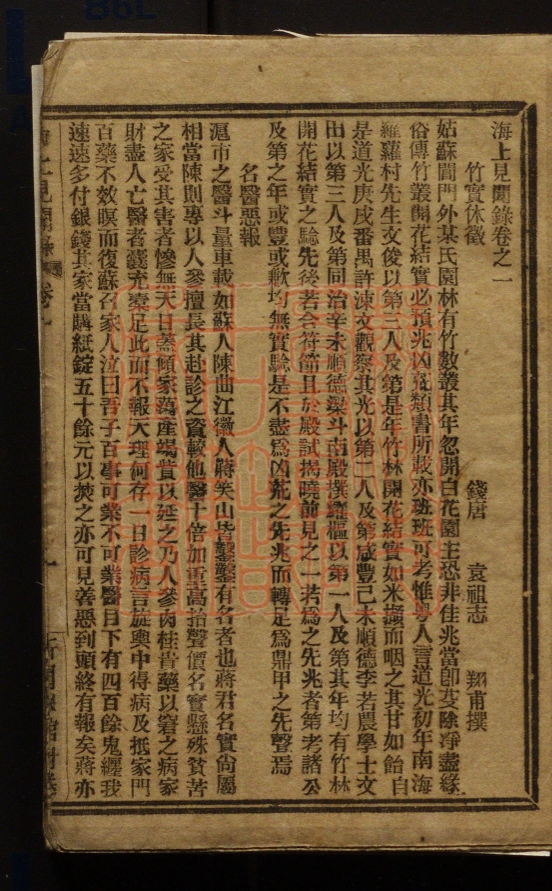 海上見聞錄卷之一
竹實休徵 錢唐 袁祖志 翔甫撰
姑蘇閶門外某氏園林有竹數叢其年忽開白花園主恐非佳兆當卽芟除凈盡緣
俗傳竹叢開花結實必預兆凶荒類書所載亦班班可考惟粵人言道光初年南海
羅蘿村先生文俊以第三人及第是年竹林開花結實如米擷而咽之其甘如飴自
是道光庚戌番禺許涑文觀察其光以第二人及第咸豐己未順德李若農學士文
田以第三人及第同治辛未順德梁斗南殿撰耀樞以第一人及第其年均有竹林
開花結實之驗先後若合符節且於殿試揭曉前見之一若爲之先兆者第考諸公
及第之年或豐或歉均無實驗是不盡爲凶荒之先兆而轉足爲鼎甲之先聲焉
名醫惡報
滬市之醫斗量車載如蘇人陳曲江徽人蔣笑山皆鑿鑿有名者也蔣君名實尙屬
相當陳則專以人參擅長其赴診之資較他醫十倍加重高抬聲價名實懸殊貧苦
之家受其害者慘無天日蓋傾家蕩產竭貲以延之乃人參肉桂貴藥以窘之病家
財盡人亡醫者囊充橐足此而不報天理何存一日診病言旋輿中得病及抵家門
百藥不效瞑而復蘇召家人泣曰吾子百事可業不可業醫目下有四百餘鬼纏我
速速多付銀錢其家當購紙錠五十餘元以焚之亦可見善惡到頭終有報矣蔣亦